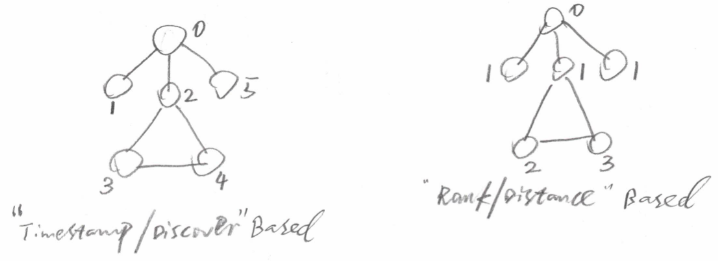 0
1
2
5
3
4
"Timestamp/Discover" Based
0
1
1
1
2
3
"Rank/Distance" Based